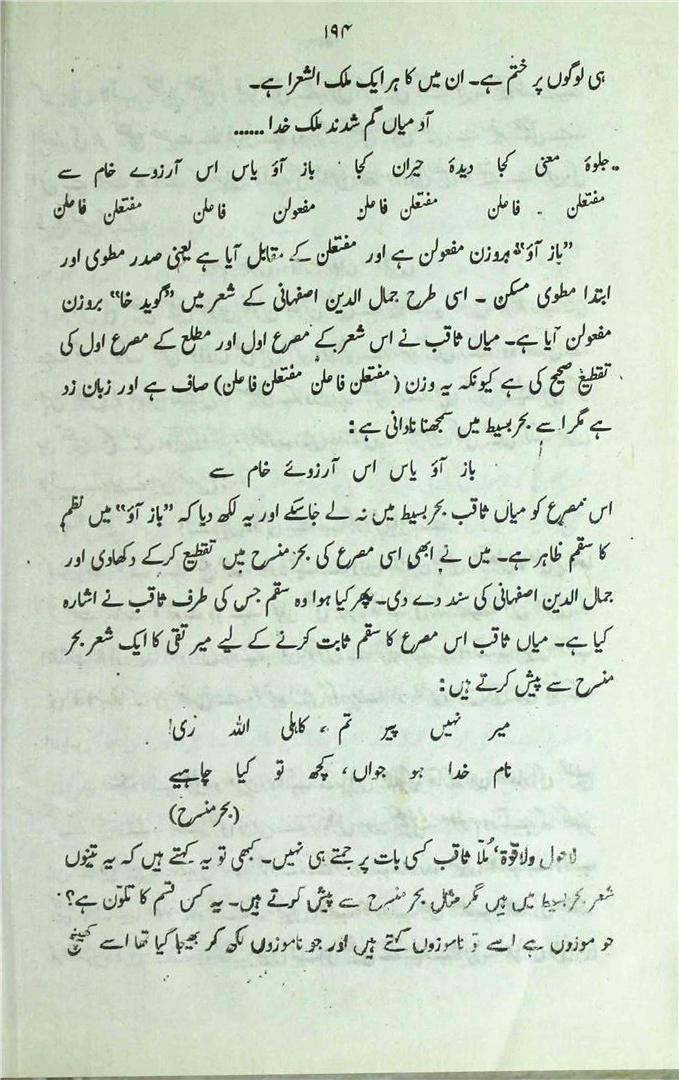 ۱۹۴
ہی لوگوں پر ختم ہے۔ ان میں کا ہر ایک ملک الشعرا ہے۔
آد میاں گم شدند ملک خدا ......
جلوۂ معنی کجا دیدۂ حیران کجا باز آؤ یاس اس آرزوے خام سے
مفتعلن فاعلن مفتعلن فاعلن مفعولن فاعلن مفتعلن فاعلن
”باز آؤ“ بروزن مفعولن ہے اور مفتعلن کے مقابل آیا ہے یعنی صدر مطوی اور
ابتدا مطوی مسکن ۔ اسی طرح جمال الدین اصفہانی کے شعر میں ”گوید خا“ بروزن
مفعولن آیا ہے۔ میاں ثاقب نے اس شعر کے مصرع اول اور مطلع کے مصرع اول کی
تقطیع صحیح کی ہے کیونکہ یہ وزن (مفتعلن فاعلن مفتعلن فاعلن) صاف ہے اور زبان زد
ہے مگر اسے بحر بسیط میں سمجھنا نادانی ہے:
باز آؤ یاس اس آرزوئے خام سے
اس مصرع کو میاں ثاقب بحر بسیط میں نہ لے جاسکے اور یہ لکھ دیا کہ ”باز آؤ“ میں نظم
کا سقم ظاہر ہے۔ میں نے ابھی اسی مصرع کی بحر منسرح میں تقطیع کرکے دکھادی اور
جمال الدین اصفہانی کی سند دے دی۔ پھر کیا ہوا وہ سقم جس کی طرف ثاقب نے اشارہ
کیا ہے۔ میاں ثاقب اس مصرع کا سقم ثابت کرنے کے لیے میر تقی کا ایک شعر بحر
منسرح سے پیش کرتے ہیں:
میر نہیں پیر تم ، کاہلی اللہ ری!
نام خدا ہو جواں، کچھ تو کیا چاہیے
(بحر منسرح)
لاحول ولاقوۃ، مُلّا ثاقب کسی بات پر جمتے ہی نہیں۔ کبھی تو یہ کہتے ہیں کہ یہ تینوں
شعر بحر بسیط میں ہیں مگر مثال بحر منسرح سے پیش کرتے ہیں۔ یہ کس قسم کا تلوّن ہے؟
جو موزوں ہے اسے تو ناموزوں کہتے ہیں اور جو ناموزوں لکھ کر بھیجا گیا تھا اسے کھینچ